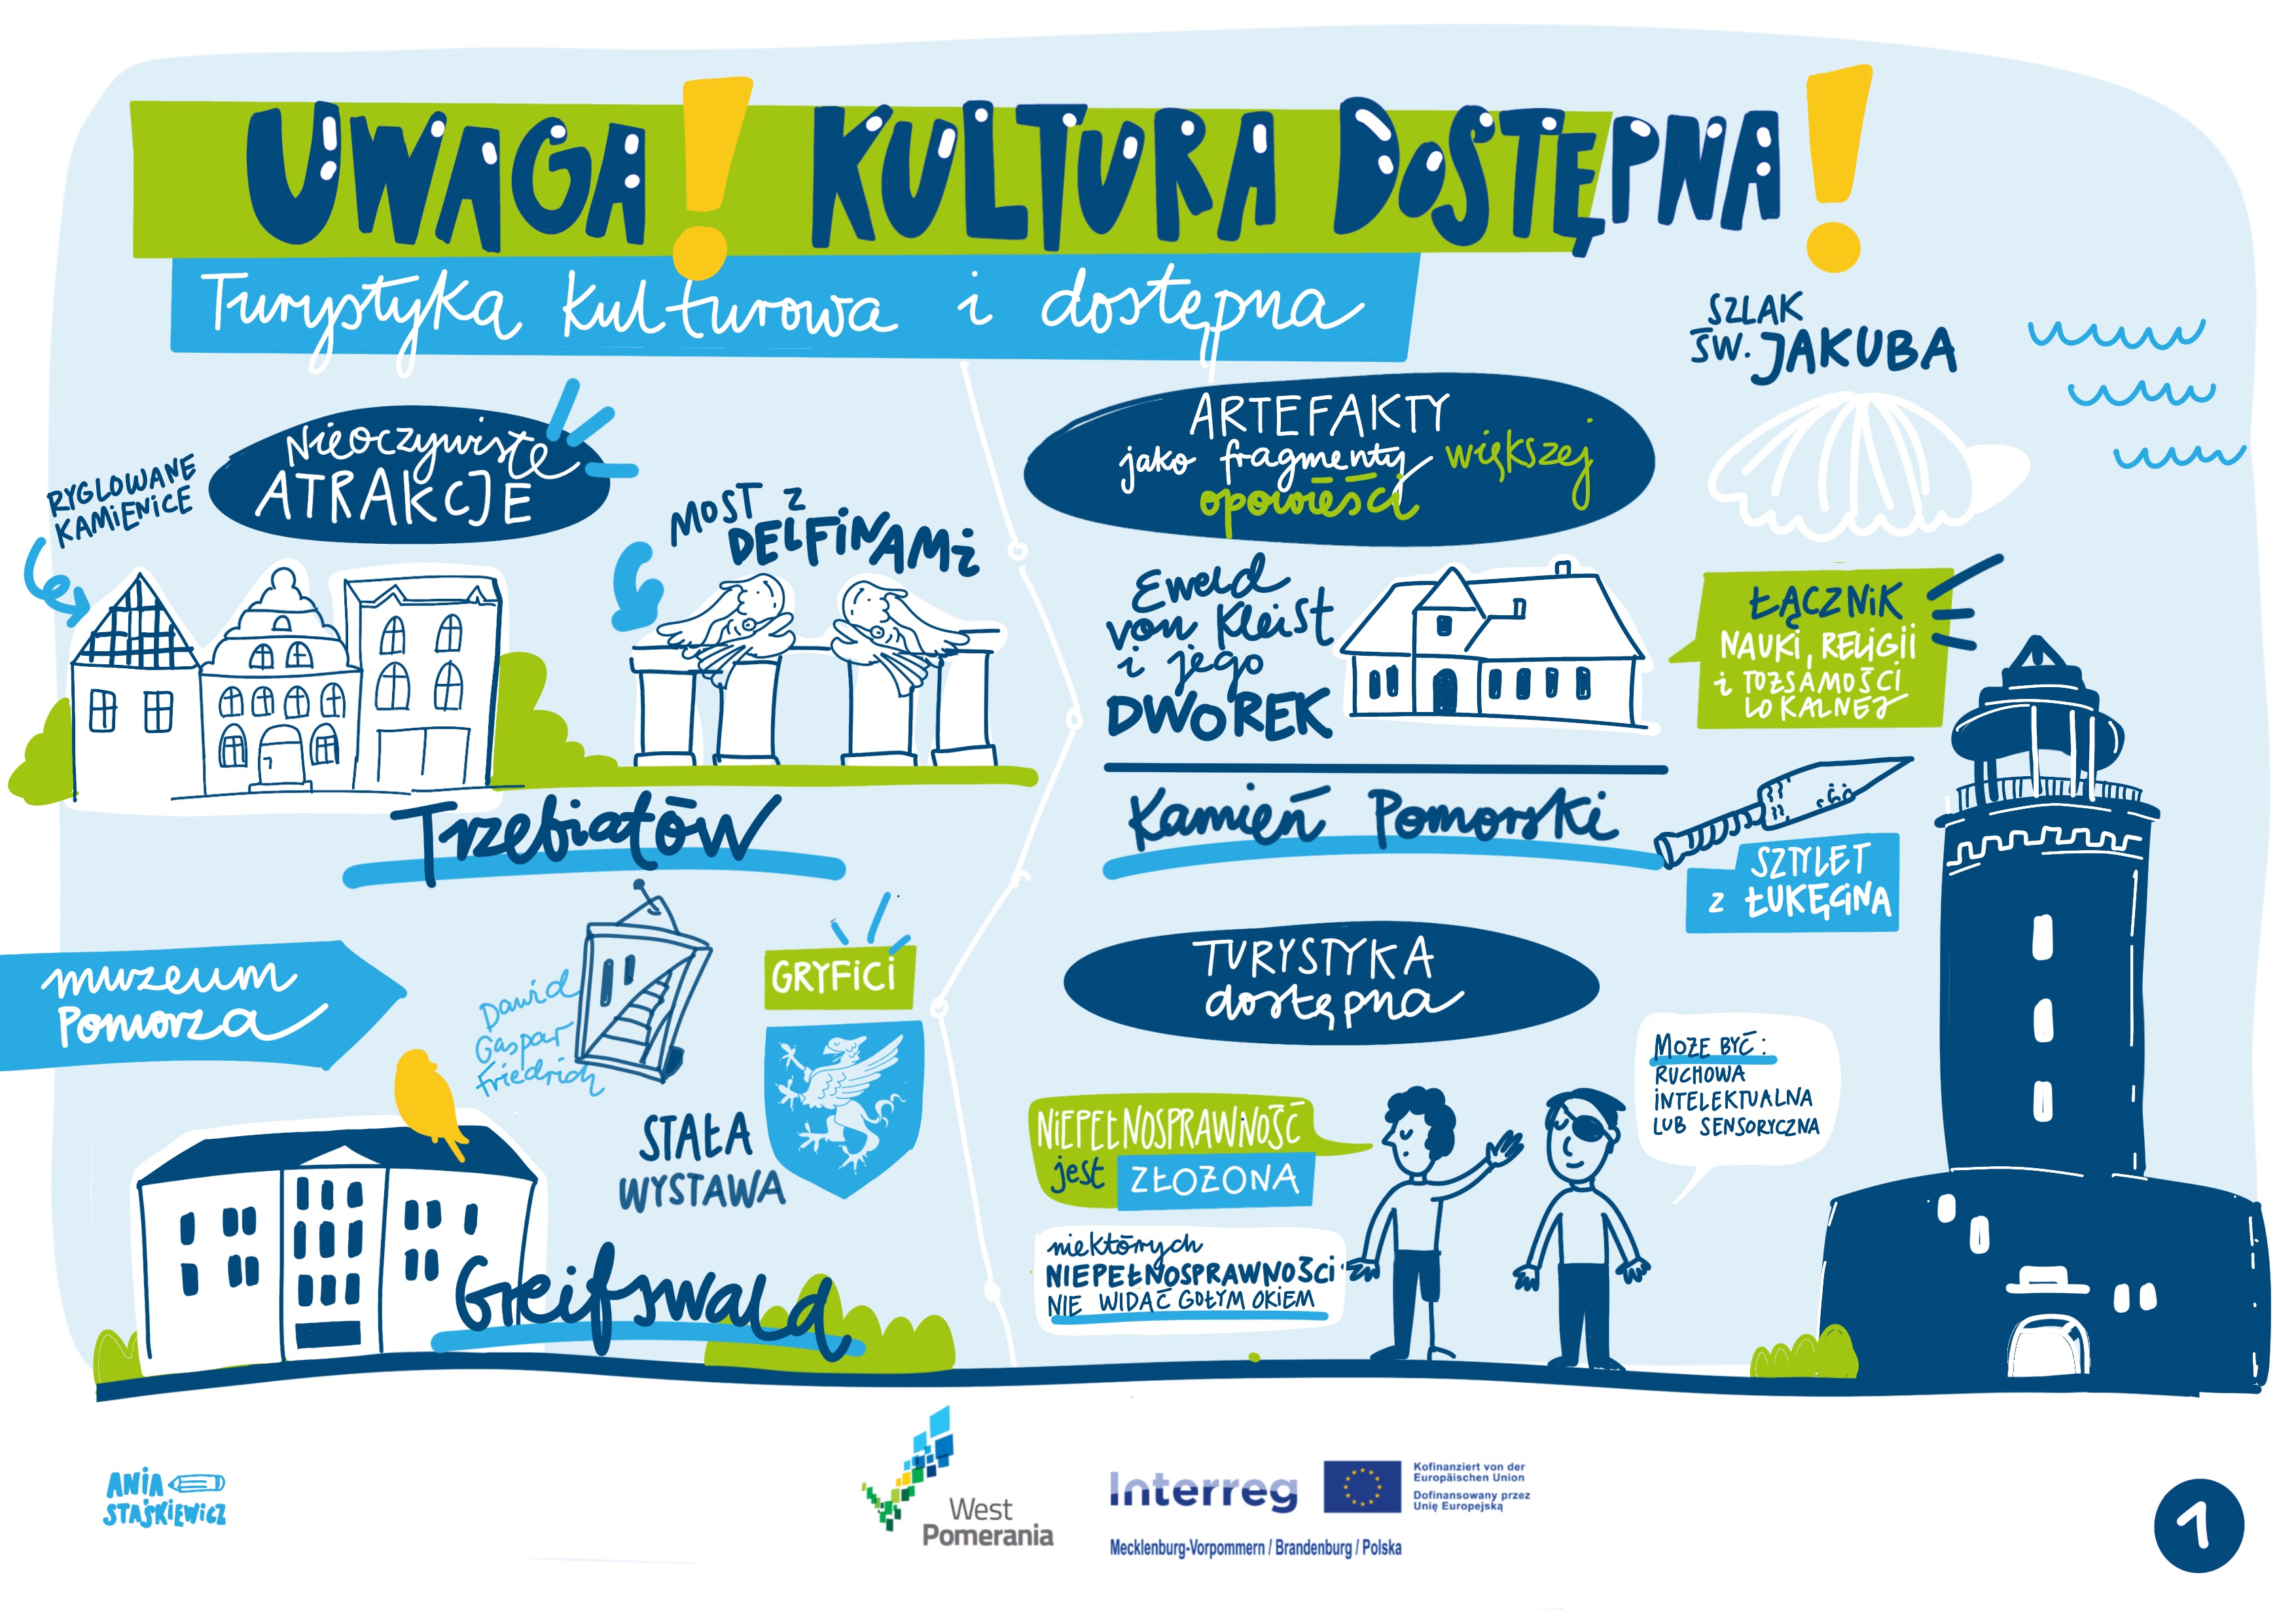 UWAGA! KULTURA DOSTĘPNA!
Turystyka kulturowa i dostępna
Nieoczywiste
ATRAKCJE
RYGLOWANE
KAMIENICE
MOST Z
DELFINAMI
Trzebiatów
muzeum
Pomorza
Dawid
Gaspar
Friedrich
GRYFICI
STAŁA
WYSTAWA
Greifswald
ARTEFAKTY
jako fragmenty większej
opowieści
SZLAK
ŚW. JAKUBA
Ewald
von Kleist
i jego
DWOREK
ŁĄCZNIK
NAUKI, RELIGII
i TOŻSAMOŚCI
LOKALNEJ
Kamień Pomorski
SZTYLET
z ŁUKĘCINA
TURYSTYKA
dostępna
NIEPEŁNOSPRAWNOŚĆ
jest ZŁOŻONA
MOŻE BYĆ:
RUCHOWA
INTELEKTUALNA
LUB SENSORYCZNA
niektórych
NIEPEŁNOSPRAWNOŚCI
NIE WIDAĆ GOŁYM OKIEM
ANIA
STAŚKIEWICZ
West
Pomerania
Interreg
Kofinanziert von der
Europäischen Union
Dofinansowany przez
Unię Europejską
Mecklenburg-Vorpommern / Brandenburg / Polska
1